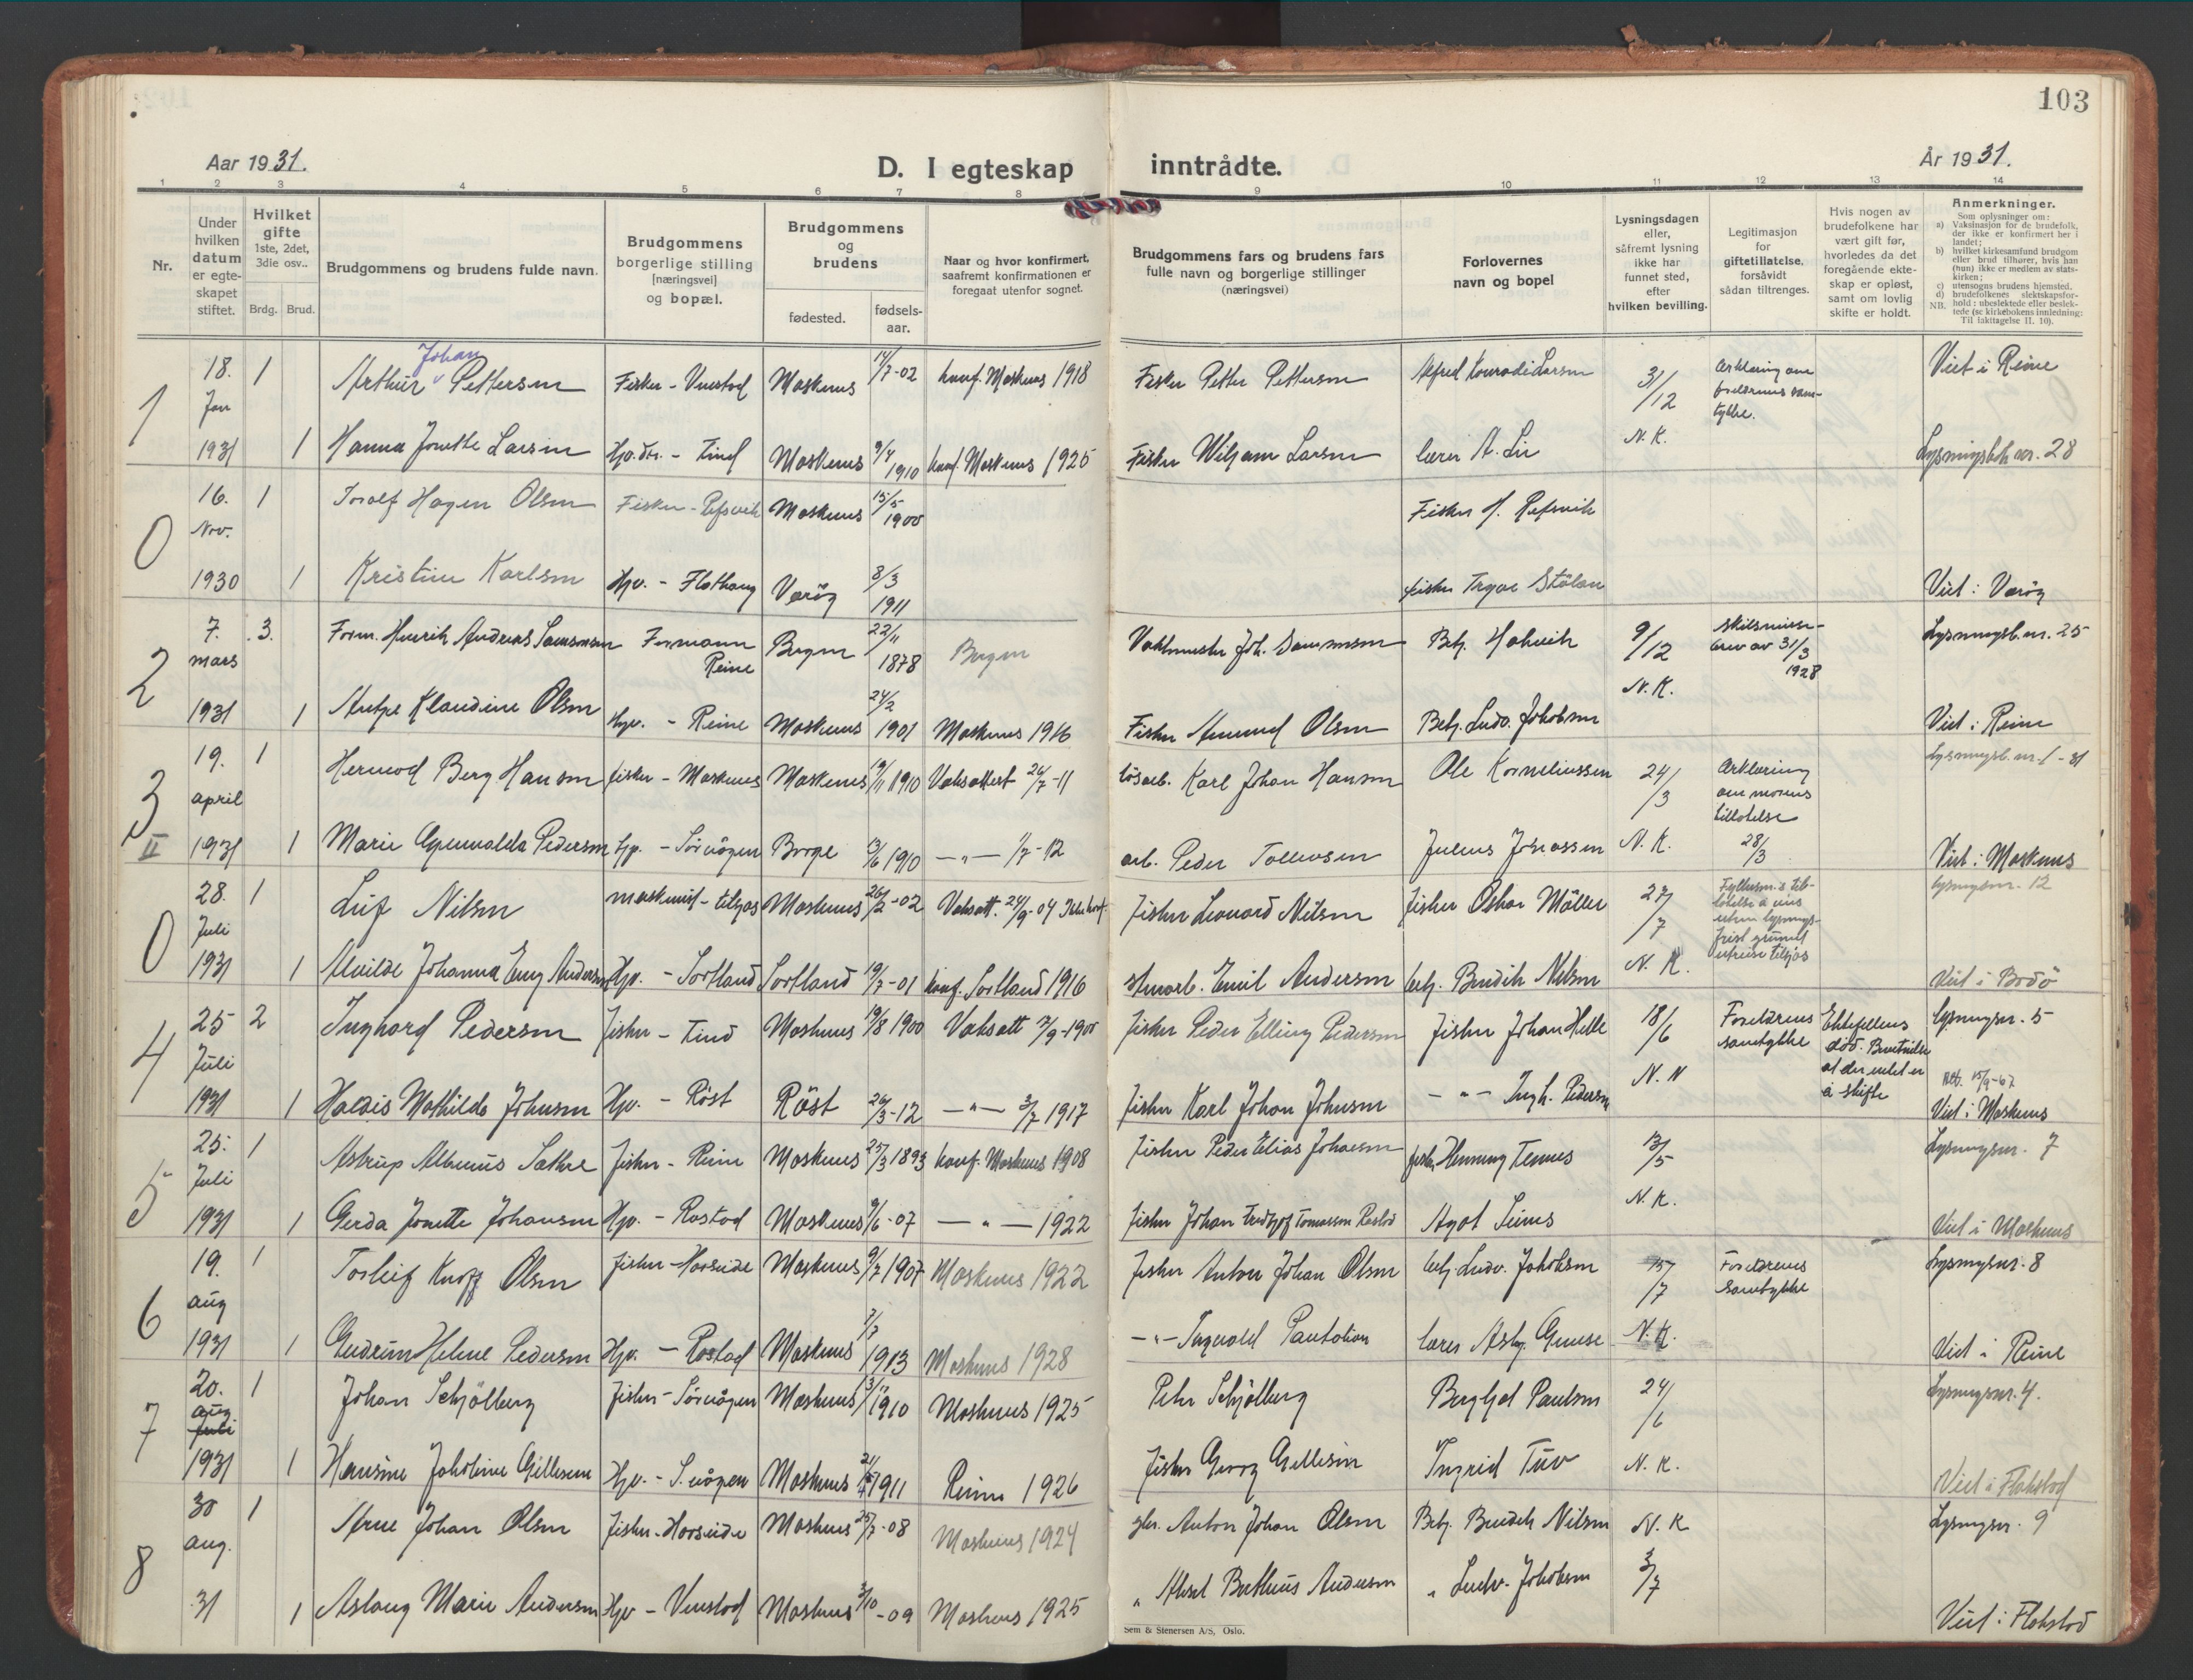 103
Aar 1931.
D. I egteskap inntrådte.
År 1931.
1 2 3 4 5 6 7 8 9 10 11 12 13 14
Nr.
Under hvilken datum er egteskapet stiftet.
Hvilket gifte 1ste, 2det, 3die osv..
Brdg. Brud.
Brudgommens og brudens fulde navn.
Brudgommens borgerlige stilling [næringsvei] og bopæl.
Brudgommens og brudens
fødested.
fødselsaar.
Naar og hvor konfirmert, saafremt konfirmationen er foregaat utenfor sognet.
Brudgommens fars og brudens fars fulle navn og borgerlige stillinger (næringsvei)
Forlovernes navn og bopel
Lysningsdagen eller, såfremt lysning ikke har funnet sted, efter hvilken bevilling.
Legitimasjon for giftetillatelse, forsåvidt sådan tiltrenges.
Hvis nogen av brudefolkene har vært gift før, hvorledes da det foregående ekteskap er opløst, samt om lovlig skifte er holdt.
Anmerkninger.
Som oplysninger om:
a) Vaksinasjon for de brudefolk, der ikke er konfirmert her i landet;
b) hvilket kirkesamfund brudgom eller brud tilhører, hvis han (hun) ikke er medlem av statskirken;
c) utensogns brudens hjemsted.
d) brudefolkenes slektskapsforhold: ubeslektede eller beslektede (se kirkebokens innledning:
NB. Til iakttagelse II. 10).
1 18. Jan 1931 1 Arthur Johan Pettersen Fisker - Vinstad Moskenes 14/7-02 konf. Moskenes 1918 Fisker Petter Pettersen Alfred Konradi Larsen 31/12 N.K. Erklæring om foreldrenes samtykke. Viet i Reine
1 Hanna Jonette Larsen Hj.dtr. - Tind Moskenes 9/4 1910 konf. Moskenes 1925 Fisker Wiljam Larsen lærer A. Lie Lysningsbok nr. 28
0 16. Nov. 1930 1 Toralf Hagen Olsen Fisker - Refsvik Moskenes 15/5 1900 Fisker H. Refsvik
1 Kristine Karlsen Hjv. - Flathaug Værøy 8/3 1911 fisker Trygve Stålan Viet i Værøy
2 7. mars 1931 3. Form. Henrik Andreas Samsonsen Formann Reine Bergen 22/11 1878 Bergen Vaktmester Joh. Samsonsen Betj. Hakvik 9/12 N.K. Skilsmissebrev av 31/3 1928 Lysningsb. nr. 25
1 Antze Klaudine Olsen Hjv. - Reine Moskenes 24/2 1901 Moskenes 1916 Fisker Amund Olsen Betj. Ludv. Jakobsen Viet i Reine
3 II 19. april 1931 1 Hermod Berg Hansen fisker - Moskenes Moskenes 19/11 1910 Vaksattest 26/7-11 løsarb. Karl Johan Hansen Ole Korneliussen 24/3 N.K. Erklæring om morens tillatelse 28/3 Lysningsb. nr. 1 - 31
1 Marie Pedersen Hjv. - Sørvågen Borge 13/6 1910 -"- 1/7-12 arb. Peder Tollevsen Julius Jonassen Viet i Moskenes
0 28. Juli 1931 1 Leif Nilsen maskinist - tilsjøs Moskenes 26/2-02 Vaksatt. 24/9-04 Ikke konf. fisker Leonard Nilsen fisker Oskar Møller 27/7 N.K. Fylkesm.s tillatelse å vies uten lysningsfrist grunnet utreise tilsjøs lysningsnr. 12
1 Alvilde Johanna Emy Andersen Hjv. - Sortland Sortland 19/7-01 konf. Sortland 1916 Emil Andersen betj. Bendik Nilsen Viet i Bodø
4 25 Juli 1931 2 Inghard Pedersen fisker - Tind Moskenes 19/8 1900 Vaksatt 7/9-1900 fisker Peder Elling Pedersen fisker Johan Helle 18/6 N.N Foreldrenes samtykke Ektefellens død. Bevitnelse at der intet er å skifte lysningsnr. 5
1 Haldis Mathilda Johnsen Hjv. - Røst Røst 26/3-12 -"- 3/7 1917 fisker Karl Johan Johnsen -"- Ingh. Pedersen 15/9-67 Viet i Moskenes
5 25. Juli 1931 1 Astrup Albenus Sæthre fisker - Reine Moskenes 25/3 1893 konf. Moskenes 1908 fisker Peder Elias Johansen fisker Henning Tennes 13/5 N.K. Lysningsnr. 7
1 Gerda Jonette Johansen Hjv. - Rostad Moskenes 9/6-07 -"- 1922 fisker Johan Fridtjof Tomassen Rostad Agot Viet i Moskenes
6 19. aug 1931 1 Torleif Knoff Olsen fisker - Horseide Moskenes 9/7 1907 Moskenes 1922 fisker Anton Johan Olsen betj. Ludv. Jakobsen 15/7 N.K. Foreldrenes samtykke Lysningsnr. 8
1 Gudrun Helene Pedersen Hjv. - Rostad Moskenes 7/7 1913 Moskenes 1928 -"- Ingvald Pantalion lærer Asbj. Viet i Reine
7 20. aug Juli 1931 1 Johan Schjølberg fisker - Sørvågen Moskenes 1910 Moskenes 1925 Peter Schjølberg Bergljot Paulsen 24/6 N.K. Lysningsnr. 4.
1 Hansine Jakobine Gillesen Hjv. - S.vågen Moskenes 1911 Reine 1926 fisker Georg Gillesen Ingrid Tuv Viet i Flakstad
8 30 aug. 31 1 Arne Johan Olsen fisker - Horseide Moskenes 25/7-08 Moskenes 1924 Anton Johan Olsen Betj. Bendik Nilsen N.K 3/7 Lysningsnr. 9
1 Aslaug Marie Andersen Hjv - Vinstad Moskenes 3/10-09 Moskenes 1925 " Aksel Berthius Andersen " Ludv. Jakobsen Viet i Flakstad
Sem & Stenersen A/S, Oslo.